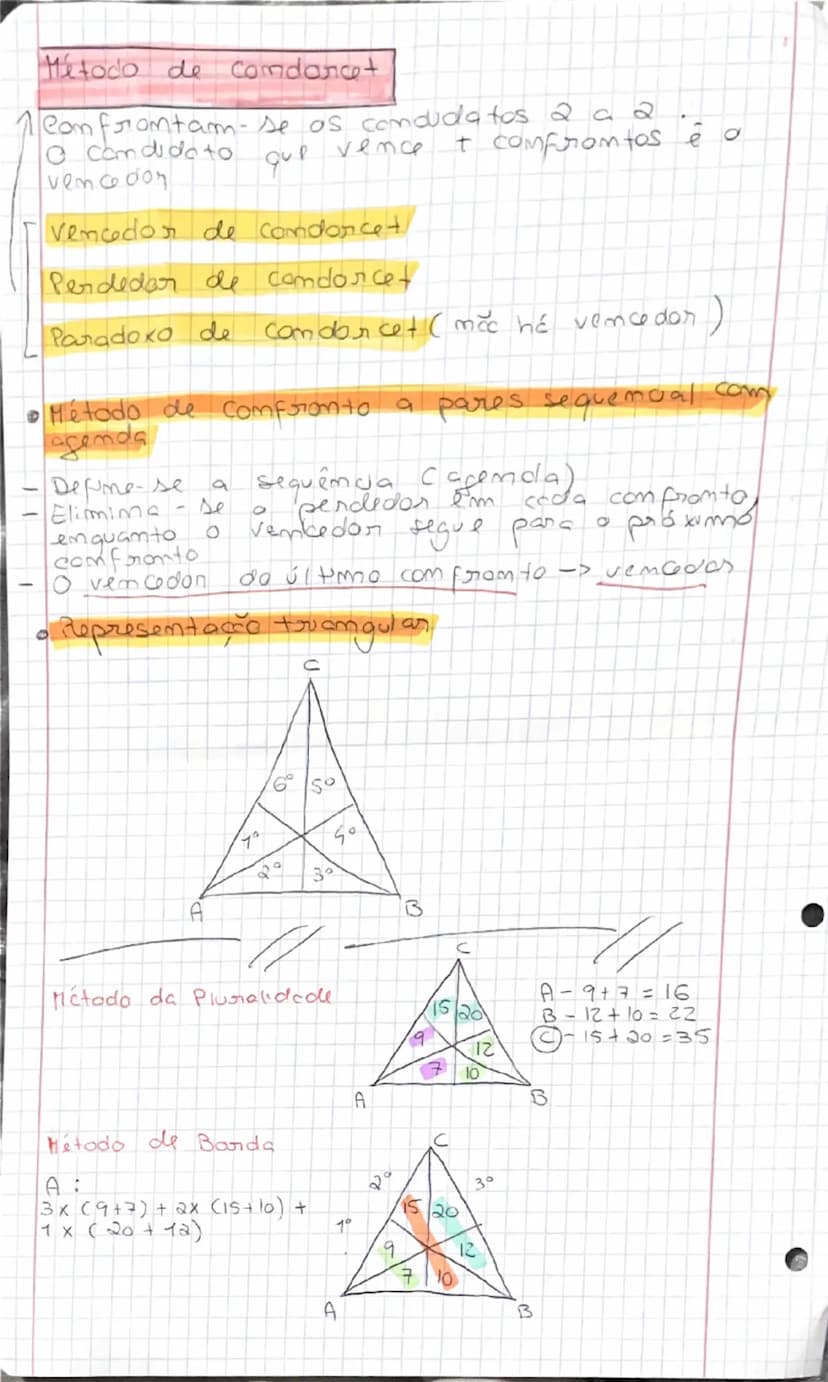 Método de Condorcet
Confrontam-se os candidatos 2 a 2.
O candidato que vence + confrontos é o
vencedor
Vencedor de Condorcet
Perdedor de Condorcet
Paradoxo de Condorcet (não há vencedor)
• Método de confronto a pares sequencial com
agenda
- Define-se a sequência (agenda)
- Elimina-se o perdedor em cada confronto,
enquanto o vencedor segue para o próximo
confronto
- O vencedor do último confronto -> vencedor
• Representação triangular
C
6º 5º
1º 4º
2º 3º
A B
C
Método da Pluralidade
A - 9+7 = 16
B - 12+10 = 22
C - 15+20 = 35
15 20
9 12
7 10
A B
Método de Borda
C
A:
2º 3º
3x(9+7) + 2x(15+10) +
1x(20+12)
1º
15 20
9 12
7 10
A B